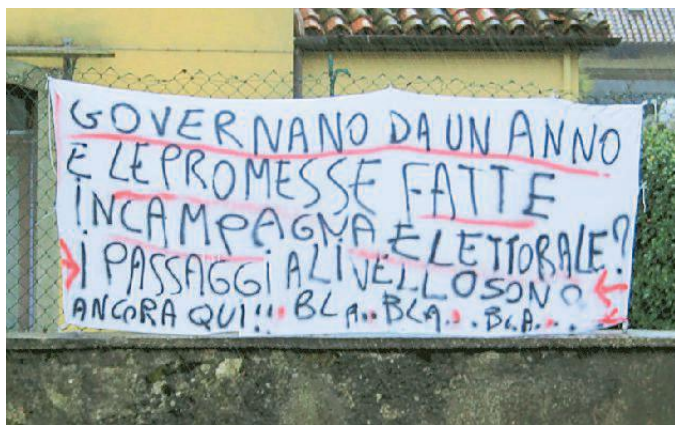 GOVERNANO DA UN ANNO
E LE PROMESSE FATTE
IN CAMPAGNA ELETTORALE?
I PASSAGGI A LIVELLO SONO
ANCORA QUI!!! BLA.. BLA... BLA...